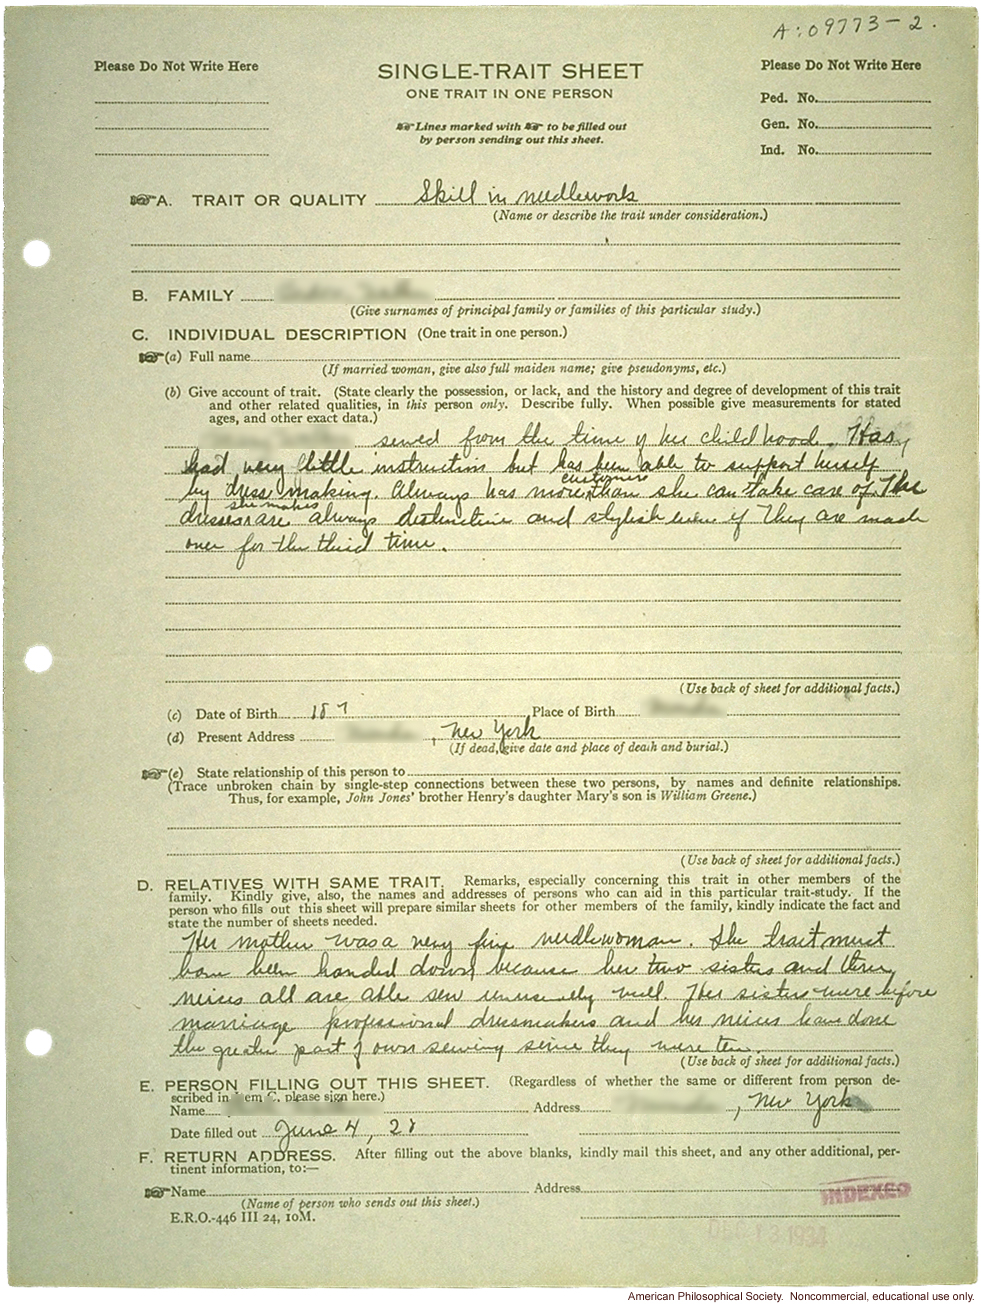 A:09773-2.
Please Do Not Write Here
SINGLE-TRAIT SHEET
ONE TRAIT IN ONE PERSON
Lines marked with to be filled out
by person sending out this sheet.
Please Do Not Write Here
Ped. No.
Gen. No.
Ind. No.
A. TRAIT OR QUALITY Skill in needlework
(Name or describe the trait under consideration.)
B. FAMILY
(Give surnames of principal family or families of this particular study.)
C. INDIVIDUAL DESCRIPTION (One trait in one person.)
(a) Full name
(If married woman, give also full maiden name; give pseudonyms, etc.)
(b) Give account of trait. (State clearly the possession, or lack, and the history and degree of development of this trait
and other related qualities, in this person only. Describe fully. When possible give measurements for stated
ages, and other exact data.)
sewed from the time of her childhood. Has
had very little instruction but has been able to support herself
by dress making. Always has more customers than she can take care of. The
dresses she makes are always distinctive and stylish even if they are made
over for the third time.
(Use back of sheet for additional facts.)
(c) Date of Birth 187 Place of Birth
(d) Present Address , New York
(If dead, give date and place of death and burial.)
(e) State relationship of this person to
(Trace unbroken chain by single-step connections between these two persons, by names and definite relationships.
Thus, for example, John Jones' brother Henry's daughter Mary's son is William Greene.)
(Use back of sheet for additional facts.)
D. RELATIVES WITH SAME TRAIT. Remarks, especially concerning this trait in other members of the
family. Kindly give, also, the names and addresses of persons who can aid in this particular trait-study. If the
person who fills out this sheet will prepare similar sheets for other members of the family, kindly indicate the fact and
state the number of sheets needed.
Her mother was a very fine needlewoman. The trait must
have been handed down because her two sisters and three
neices all are able sew unusually well. Her sisters were before
marriage professional dressmakers and her neices have done
the greater part of own sewing since they were ten.
(Use back of sheet for additional facts.)
E. PERSON FILLING OUT THIS SHEET. (Regardless of whether the same or different from person de-
scribed in Item C, please sign here.)
Name Address , New York
Date filled out June 4, 28
F. RETURN ADDRESS. After filling out the above blanks, kindly mail this sheet, and any other additional, per-
tinent information, to:—
Name Address
(Name of person who sends out this sheet.)
E.R.O.-446 III 24, 10M.
INDEXED
DEC 13 1934
American Philosophical Society. Noncommercial, educational use only.